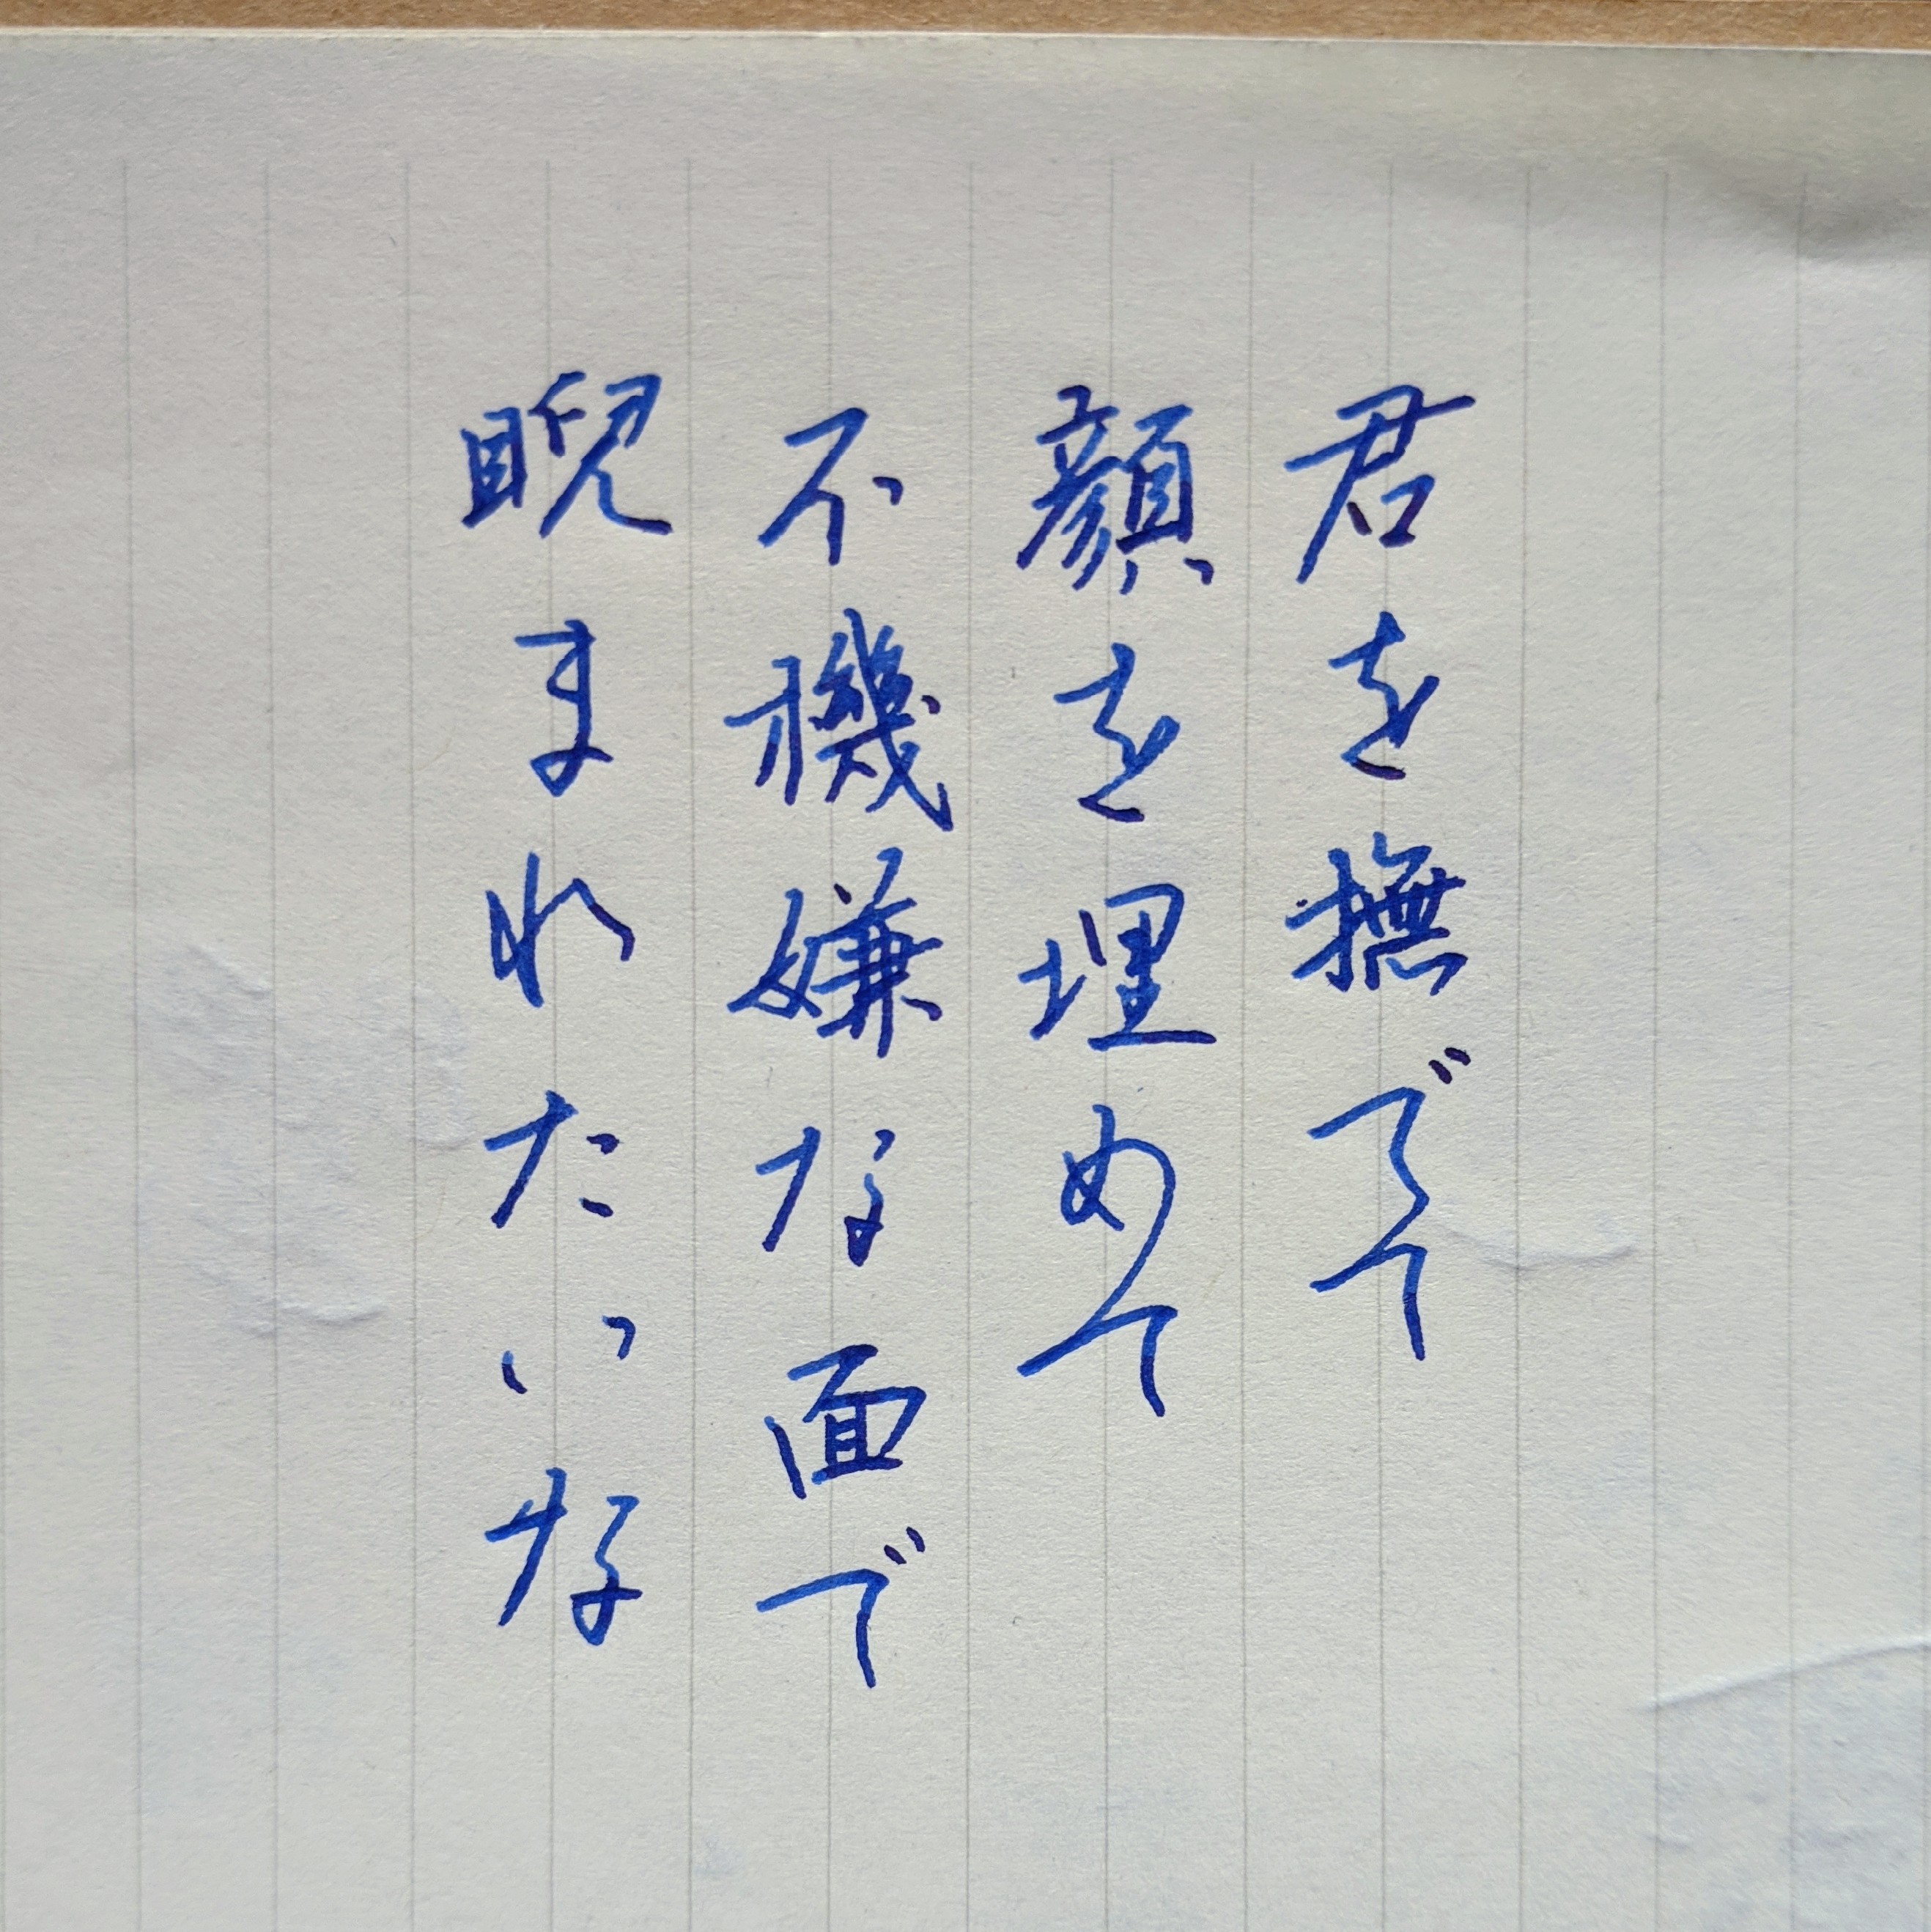 君を撫でて
顔を埋めて
不機嫌な面で
睨まれたいな